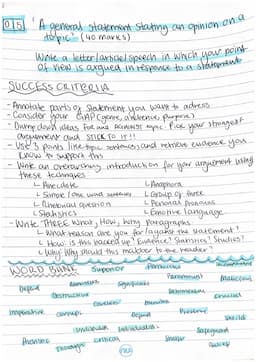 0 5 ' A general statement stating an opinion on a
topic' (40 marks)
Write a letter/article/speech in which your point
of view is argued in response to a statement
SUCCESS CRITERIA
- Annotate parts of statement you want to address
- Consider your GAP (genre, audience, purpose)
- Dump down ideas for and against topic. Pick your strongest
argument and STICK TO IT!!
- Use 3 points like topic sentences and retrieve evidence you
know to support this
- Write an overarching introduction for your argument using
these techniques
↳ Anecdote ↳ Anaphora
↳ Simple/one word sentences ↳ Group of three
↳ Rhetorical question ↳ Personal Pronouns
↳ Statistics ↳ Emotive language
- Write THREE What, How, Why Paragraphs
↳ What reason are you for/against the statement?
↳ How is this backed up? Evidence? Statistics? Studies?
↳ Why should this matter to the reader?
WORD BANK Superior Pernicious
Paramount Malicious
Depend Significant
Destructive Detrimental
Imperative corrupt Depend Preserve Shield
Individuals Safeguard
critical